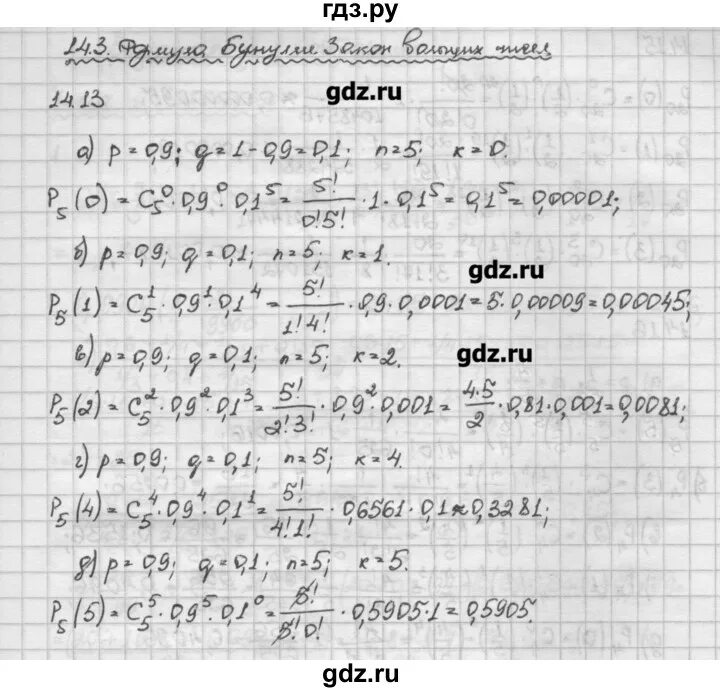 гдз.ру
14.3. Формула Бунулли. Закон больших чисел
gdz.ru
14.13
а) p = 0,9; q = 1 - 0,9 = 0,1; n = 5; к = 0.
P₅(0) = C₅⁰ · 0,9⁰ · 0,1⁵ = 5!/0!5! · 1 · 0,1⁵ = 0,1⁵ = 0,00001;
б) p = 0,9; q = 0,1; n = 5; к = 1.
gdz.ru
P₅(1) = C₅¹ · 0,9¹ · 0,1⁴ = 5!/1!4! · 0,9 · 0,0001 = 5 · 0,00009 = 0,00045;
в) p = 0,9; q = 0,1; n = 5; к = 2.
gdz.ru
P₅(2) = C₅² · 0,9² · 0,1³ = 5!/2!3! · 0,9² · 0,001 = 4·5/2 · 0,81 · 0,001 = 0,0081;
г) p = 0,9; q = 0,1; n = 5; к = 4.
P₅(4) = C₅⁴ · 0,9⁴ · 0,1¹ = 5!/4!1! · 0,6561 · 0,1 ≈ 0,3281;
д) p = 0,9; q = 0,1; n = 5; к = 5.
gdz.ru
P₅(5) = C₅⁵ · 0,9⁵ · 0,1⁰ = 5!/5!0! · 0,5905 · 1 = 0,5905.
gdz.ru